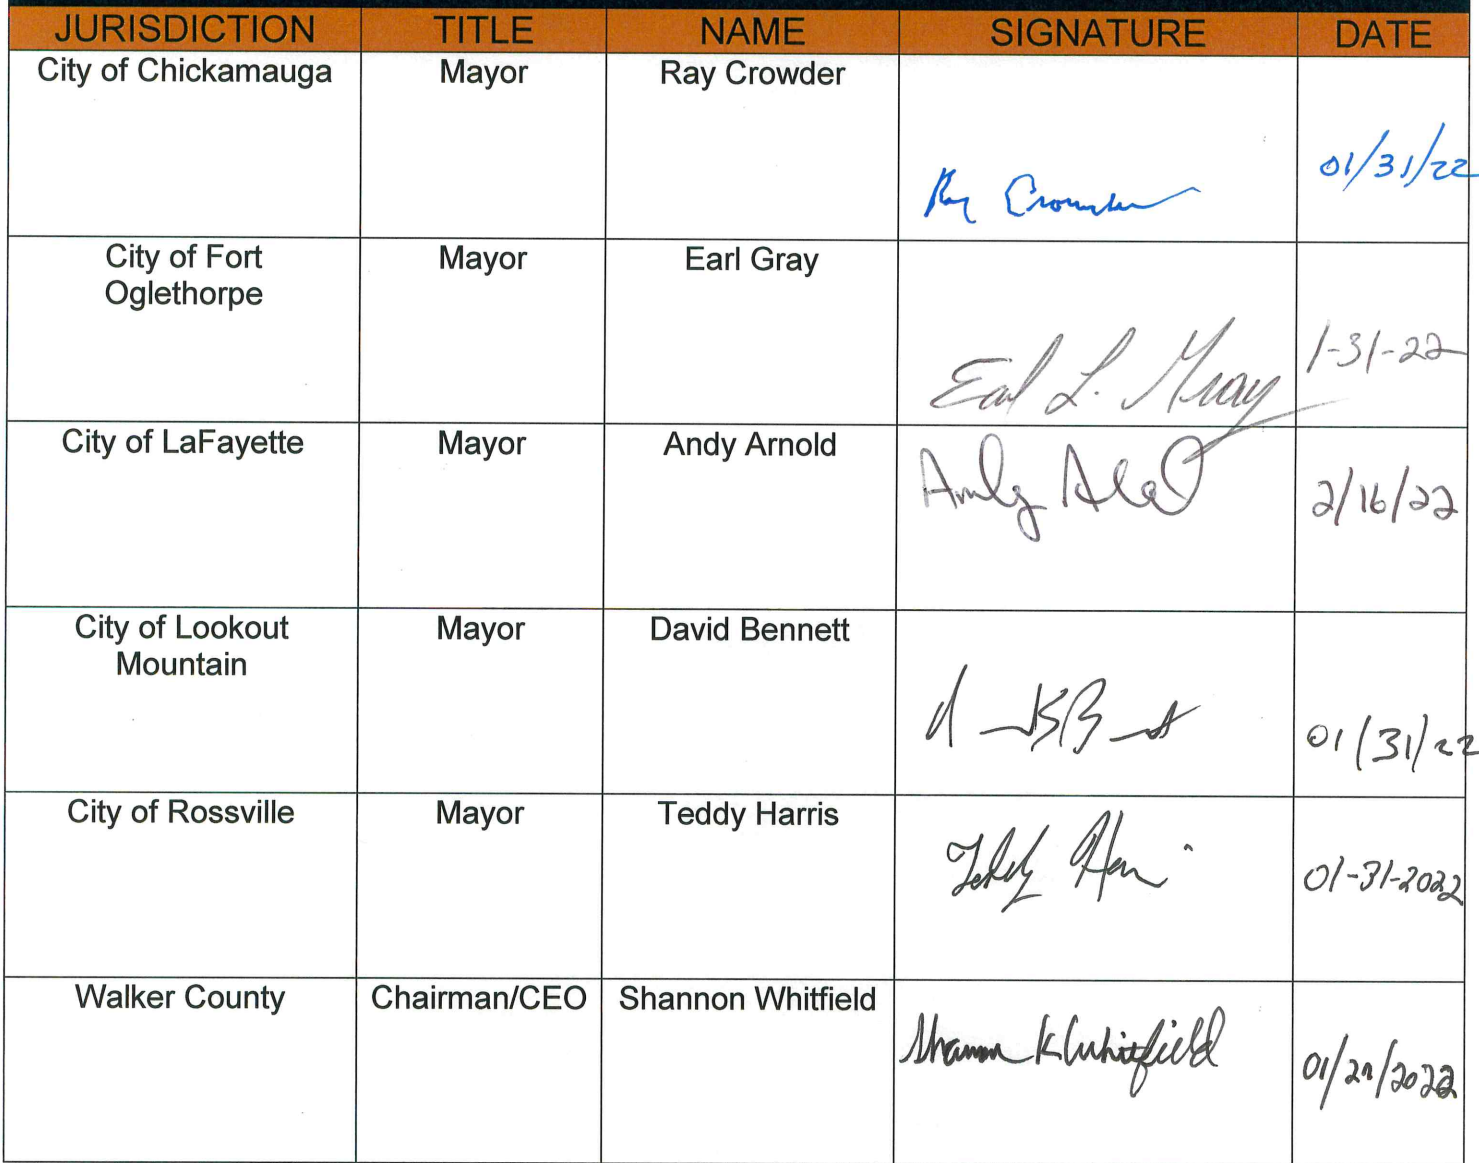 JURISDICTION TITLE NAME SIGNATURE DATE
City of Chickamauga Mayor Ray Crowder
Ray Crowder 01/31/22
City of Fort Mayor Earl Gray
Oglethorpe
Earl L. Gray 1-31-22
City of LaFayette Mayor Andy Arnold
Andy 2/16/22
City of Lookout Mayor David Bennett
Mountain
01/31/22
City of Rossville Mayor Teddy Harris
Teddy Harris 01-31-2022
Walker County Chairman/CEO Shannon Whitfield
Shannon K Whitfield